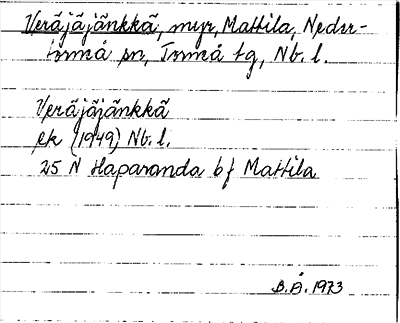 Veräjäjänkkä, myr, Mattila, Neder-
torneå sn, Torneå tg, Nb. l.
Veräjäjänkkä
ek (1949) Nb. l.
25 N Haparanda bf Mattila
B.Å. 1973